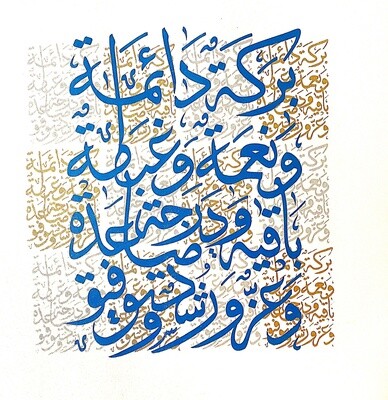 بركة دائمة
ونعمة وغبطة
باقية ودرجة صاعدة
وعز ورشد وتوفيق